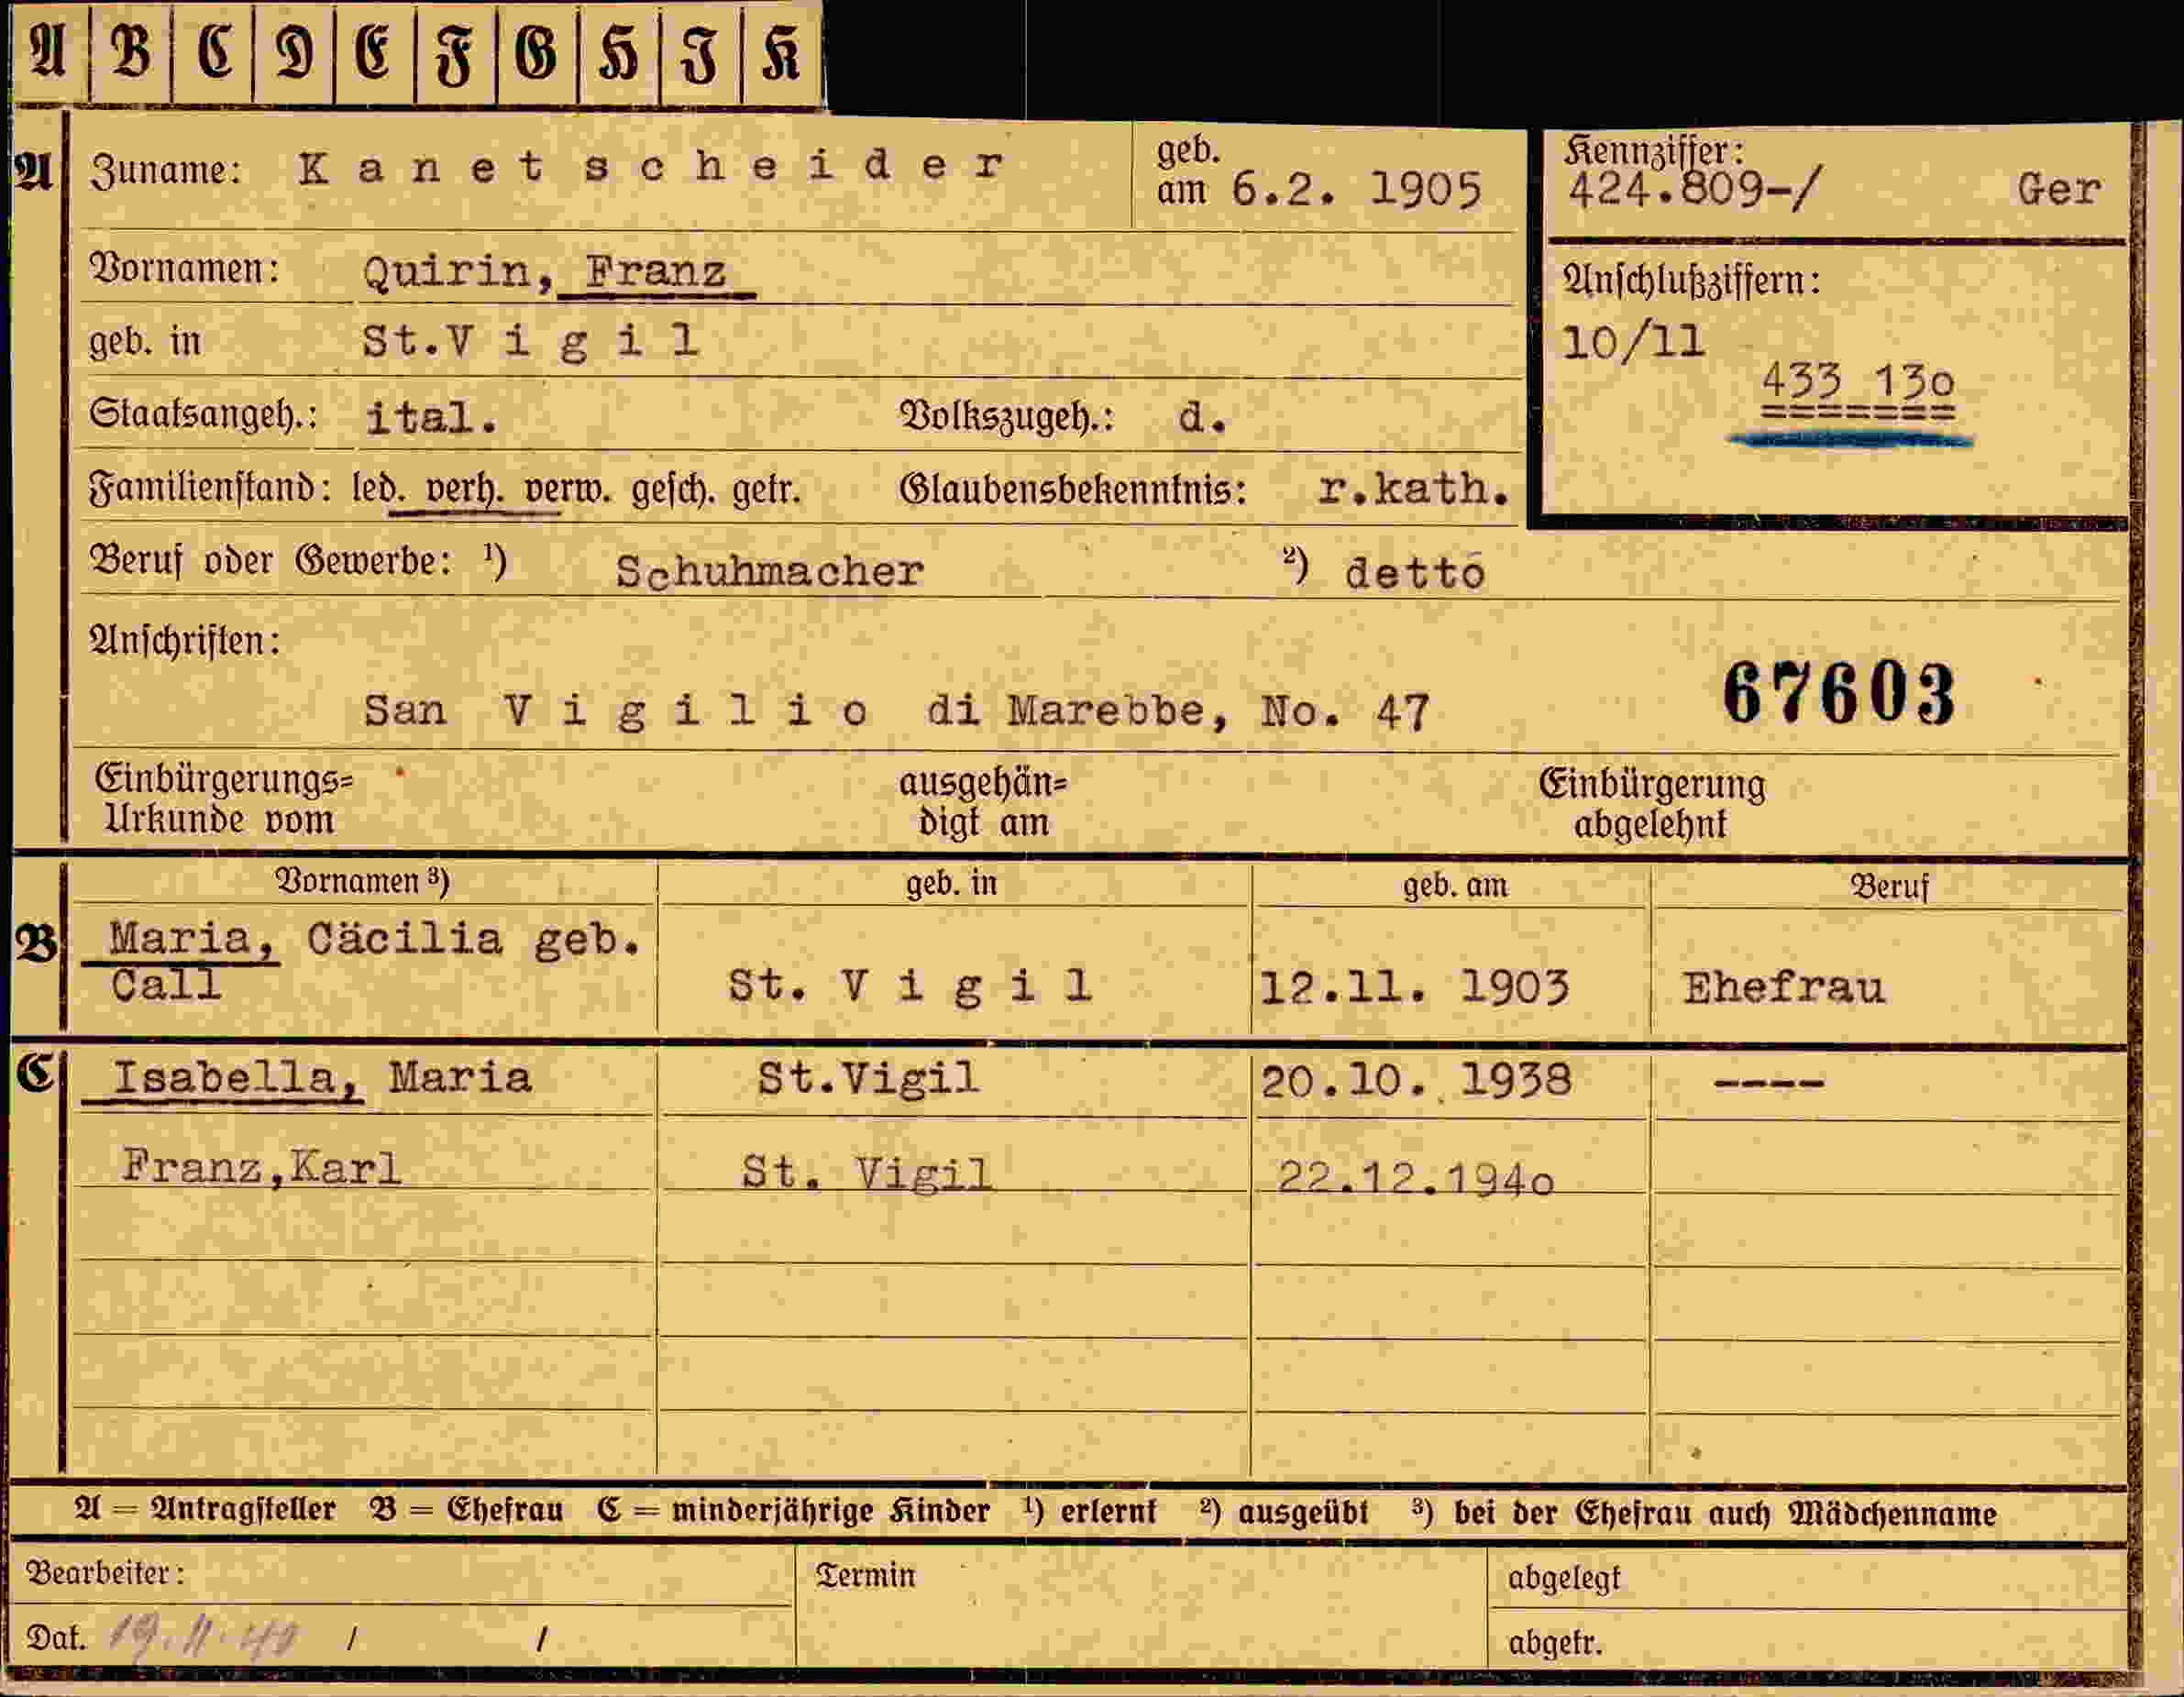 A B C D E F G H I K
A Zuname: Kanetscheider geb. am 6.2. 1905
Kennziffer: 424.809-/ Ger
Vornamen: Quirin, Franz
Anschlußziffern:
geb. in St.Vigil
10/11
433 130
=======
Staatsangeh.: ital. Volkszugeh.: d.
Familienstand: led. verh. verw. gesch. getr. Glaubensbekenntnis: r.kath.
Beruf oder Gewerbe: ¹) Schuhmacher ²) detto
Anschriften:
San Vigilio di Marebbe, No. 47
67603
Einbürgerungs= ausgehän= Einbürgerung
Urkunde vom digt am abgelehnt
Vornamen ³) geb. in geb. am Beruf
B Maria, Cäcilia geb.
Call St. Vigil 12.11. 1903 Ehefrau
C Isabella, Maria St.Vigil 20.10. 1938 ----
Franz,Karl St. Vigil 22.12.194o
A = Antragsteller B = Ehefrau C = minderjährige Kinder ¹) erlernt ²) ausgeübt ³) bei der Ehefrau auch Mädchenname
Bearbeiter: Termin abgelegt
Dat. 19.11.40 / / abgetr.